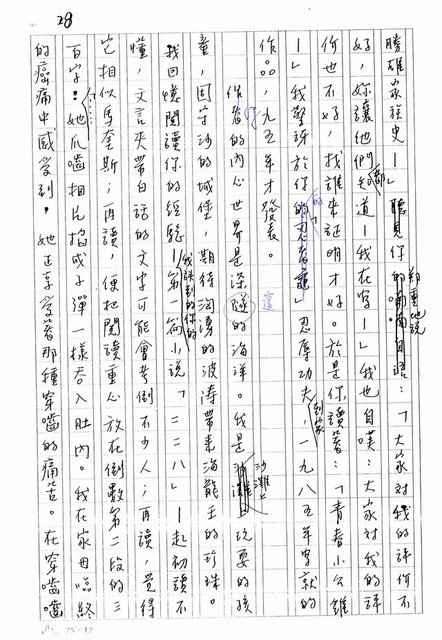 28
勝雄家族史—」聽見你鄭重地說：「大家對我的評價不
好，妳讓他們都知道—我在寫—」我也自嘆：大家對我的評
價也不好，找誰來証明才好。於是你讀著：「青春小公雞
—」我驚訝於你的「忍者龜」忍厚功夫，一九八五年寫就的
作品，九五年才發表。
作者的內心世界是深隧的海洋。我是沙灘上玩耍的孩
童，固守沙的城堡，期待洶湧的波濤帶來海龍王的珍珠。
我回憶閱讀你的經驗—我讀到的你的第一篇小說「二二八」—起初讀不
懂，文言夾帶白話的文字可能會考倒不少人；再讀，覺得
它相似馬奎斯；再讀，便把閱讀重心放在倒數第二段的三
百字：她爪嚙相片搯成子彈一樣吞入肚內。我在家母臨終
的癌痛中感受到，她正享受著那種穿嚙的痛苦。在穿嚙嚙